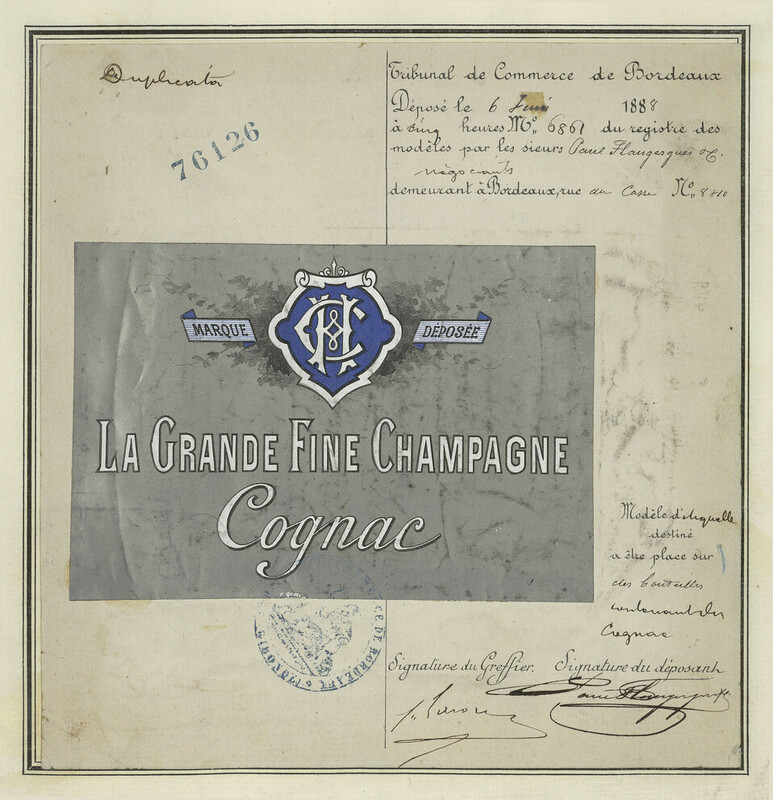 Duplicata
76126
Tribunal de Commerce de Bordeaux
Déposé le 6 Juin 1888
à cinq heures No. 6861 du registre des
modèles par les sieurs Paul Flaugergues & C.
négociants
demeurant à Bordeaux, rue du Casse No.
MARQUE DÉPOSÉE
LA GRANDE FINE CHAMPAGNE
Cognac
Modèle d'étiquette
destiné
a être place sur
des bouteilles
contenant du
Cognac
DE BORDEAUX
Signature du Greffier. Signature du déposant
Paul Flaugergues